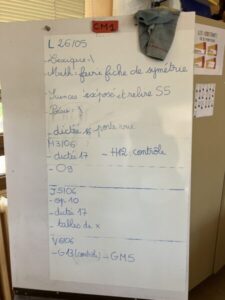 CM1
L 26/05
- Lexique 1
- Math : faire fiche de symétrie
- Sciences exposé et relire S5
- Poésie
- dictée 16 porte vue
M3/06
- dictée 17 - H12 contrôle
- O9
J5/06
- op. 10
- dictée 17
- tables de x
V6/06
- G13 (contrôle) - GM5